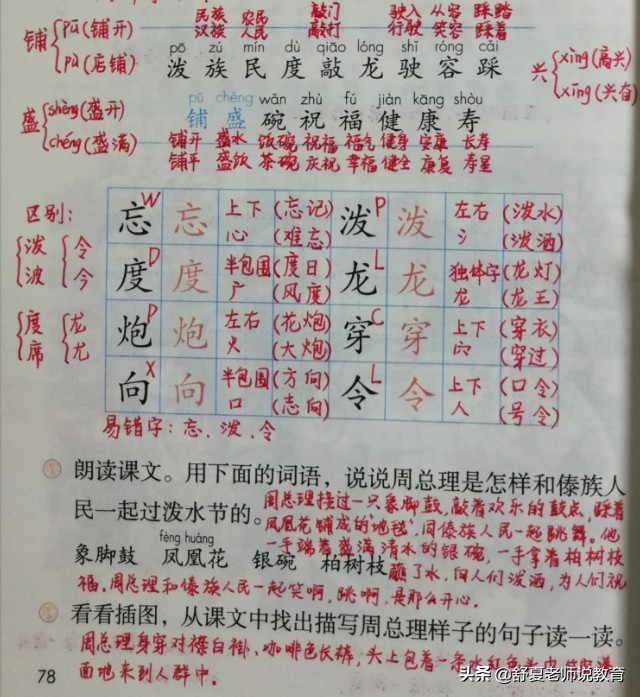 民族 农民 敲门 驶入 从容 踩踏
铺 pū(铺开) 汉族 人民 敲打 行驶 笑容 踩着
pù(店铺)
pō zú mín dù qiāo lóng shǐ róng cǎi
泼 族 民 度 敲 龙 驶 容 踩
兴 xìng(高兴)
xīng(兴奋)
盛 shèng(盛开)
chéng(盛满)
pū chéng wǎn zhù fú jiàn kāng shòu
铺 盛 碗 祝 福 健 康 寿
铺开 盛水 饭碗 祝福 福气 健身 安康 长寿
铺平 盛饭 茶碗 庆祝 幸福 健全 康复 寿星
区别:
泼 令
波 今
度 龙
席 尤
忘 W 忘 上下 (忘记) 泼 P 泼 左右 (泼水)
心 (难忘) 氵 (泼洒)
度 D 度 半包围 (度日) 龙 L 龙 独体字 (龙灯)
广 (风度) 龙 (龙王)
炮 P 炮 左右 (花炮) 穿 C 穿 上下 (穿衣)
火 (大炮) 穴 (穿过)
向 X 向 半包围 (方向) 令 L 令 上下 (口令)
口 (志向) 人 (号令)
易错字:忘、泼、令
朗读课文。用下面的词语,说说周总理是怎样和傣族人
民一起过泼水节的。
周总理接过一只象脚鼓,敲着欢乐的鼓点,踩着
凤凰花铺成的"地毯",同傣族人民一起跳舞。他
一手端着盛满清水的银碗,一手拿着柏树枝
fèng huáng
象脚鼓 凤凰花 银碗 柏树枝
蘸了水,向人们泼洒,为人们祝
福。周总理和傣族人民一起笑啊,跳啊,是那么开心。
看看插图,从课文中找出描写周总理样子的句子读一读。
周总理身穿对襟白褂,咖啡色长裤,头上包着一条水红色头巾
面地来到人群中。
78
头条 @舒夏老师说教育